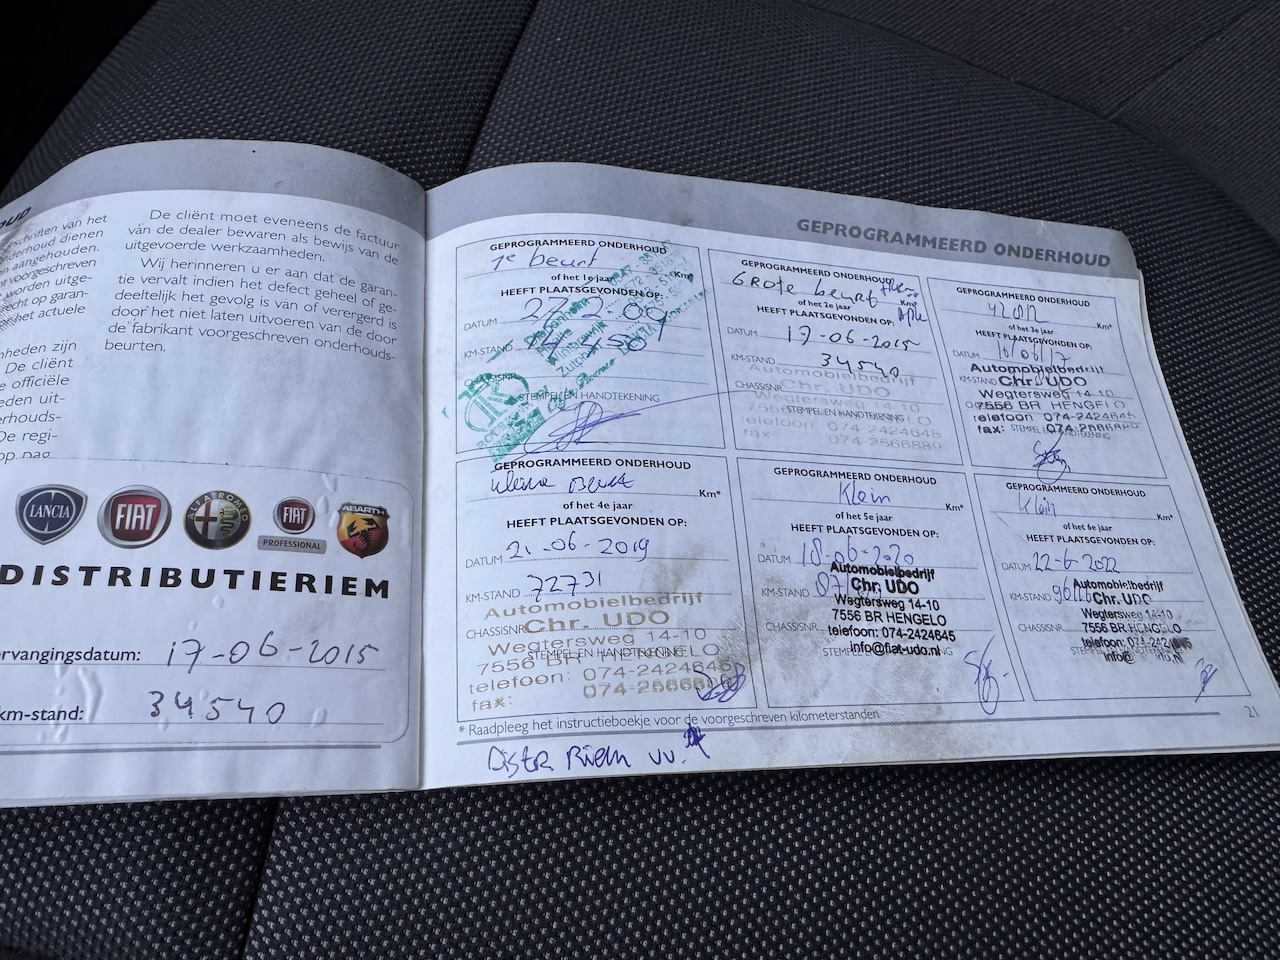 UD
schriften van het
derhoud dienen
n aangehouden.
ht voorgeschreven
worden uitge-
echt op garan-
er het actuele
heden zijn
De cliënt
e officiële
eden uit-
rhouds-
De regi-
op pag.
De cliënt moet eveneens de factuur
van de dealer bewaren als bewijs van de
uitgevoerde werkzaamheden.
Wij herinneren u er aan dat de garan-
tie vervalt indien het defect geheel of ge-
deeltelijk het gevolg is van of verergerd is
door het niet laten uitvoeren van de door
de fabrikant voorgeschreven onderhouds-
beurten.
LANCIA
FIAT
ALFA ROMEO
FIAT
PROFESSIONAL
ABARTH
DISTRIBUTIERIEM
ervangingsdatum: 17-06-2015
km-stand: 34540
GEPROGRAMMEERD ONDERHOUD
GEPROGRAMMEERD ONDERHOUD
1e beurt
Km*
of het 1e jaar
HEEFT PLAATSGEVONDEN OP:
DATUM
KM-STAND
CHASSISNR.
STEMPEL EN HANDTEKENING
GEPROGRAMMEERD ONDERHOUD
Grote beurt
Km*
of het 2e jaar
HEEFT PLAATSGEVONDEN OP:
DATUM 17-06-2015
KM-STAND 34540
CHASSISNR.
Automobielbedrijf
Chr. UDO
Wegtersweg 14-10
STEMPEL EN HANDTEKENING
telefoon: 074-2424645
fax: 074-2566880
GEPROGRAMMEERD ONDERHOUD
Km*
of het 3e jaar
HEEFT PLAATSGEVONDEN OP:
DATUM 16/06/17
KM-STAND
Automobielbedrijf
Chr. UDO
Wegtersweg 14-10
7556 BR HENGELO
telefoon 074-2424645
fax: 074-2566880
STEMPEL EN HANDTEKENING
GEPROGRAMMEERD ONDERHOUD
kleine Beurt
Km*
of het 4e jaar
HEEFT PLAATSGEVONDEN OP:
DATUM 21-06-2019
KM-STAND 72731
CHASSISNR.
Automobielbedrijf
Chr. UDO
Wegtersweg 14-10
7556 BR HENGELO
STEMPEL EN HANDTEKENING
telefoon: 074-2424645
fax: 074-2566880
GEPROGRAMMEERD ONDERHOUD
Klein
Km*
of het 5e jaar
HEEFT PLAATSGEVONDEN OP:
DATUM 18-06-2020
KM-STAND
CHASSISNR.
Automobielbedrijf
Chr. UDO
Wegtersweg 14-10
7556 BR HENGELO
telefoon: 074-2424645
info@fiat-udo.nl
GEPROGRAMMEERD ONDERHOUD
Klein
Km*
of het 6e jaar
HEEFT PLAATSGEVONDEN OP:
DATUM 22-6-2022
KM-STAND
CHASSISNR.
Automobielbedrijf
Chr. UDO
Wegtersweg 14-10
7556 BR HENGELO
telefoon:
* Raadpleeg het instructieboekje voor de voorgeschreven kilometerstanden
21
Distr Riem vv.